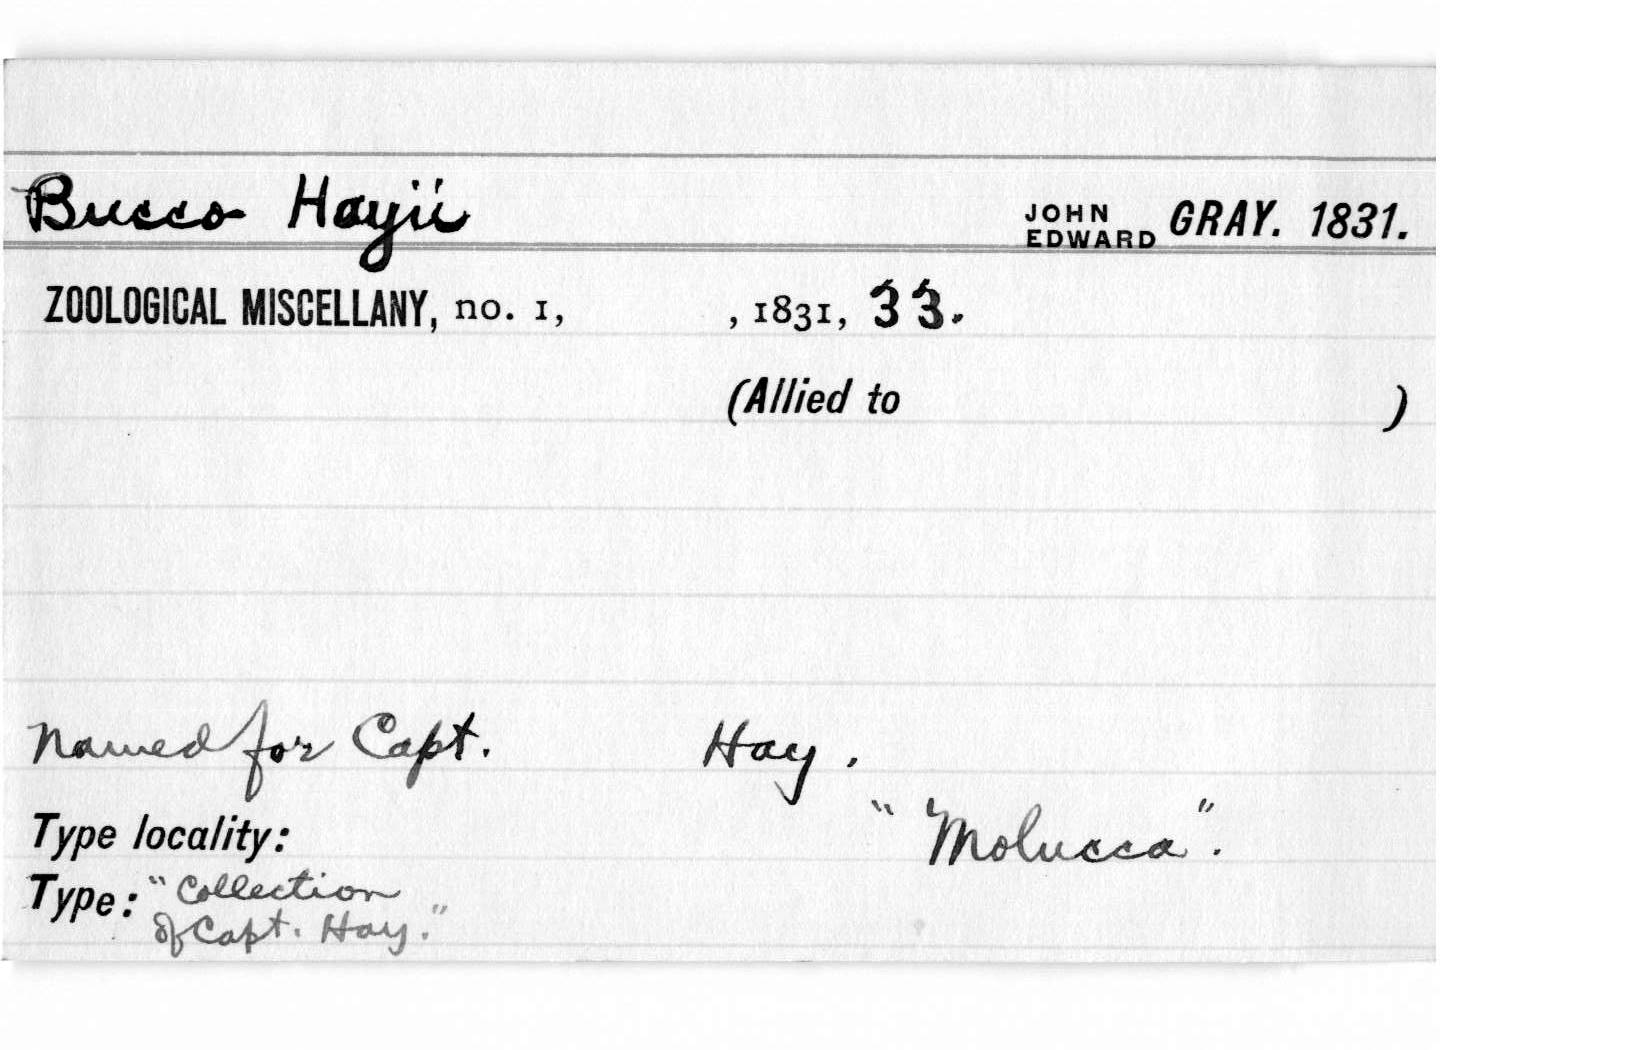 Bucco Hayii JOHN EDWARD GRAY. 1831.
ZOOLOGICAL MISCELLANY, no. 1, , 1831, 33.
(Allied to )
Named for Capt. Hay.
Type locality: "Molucca".
Type: "Collection
of Capt. Hay."